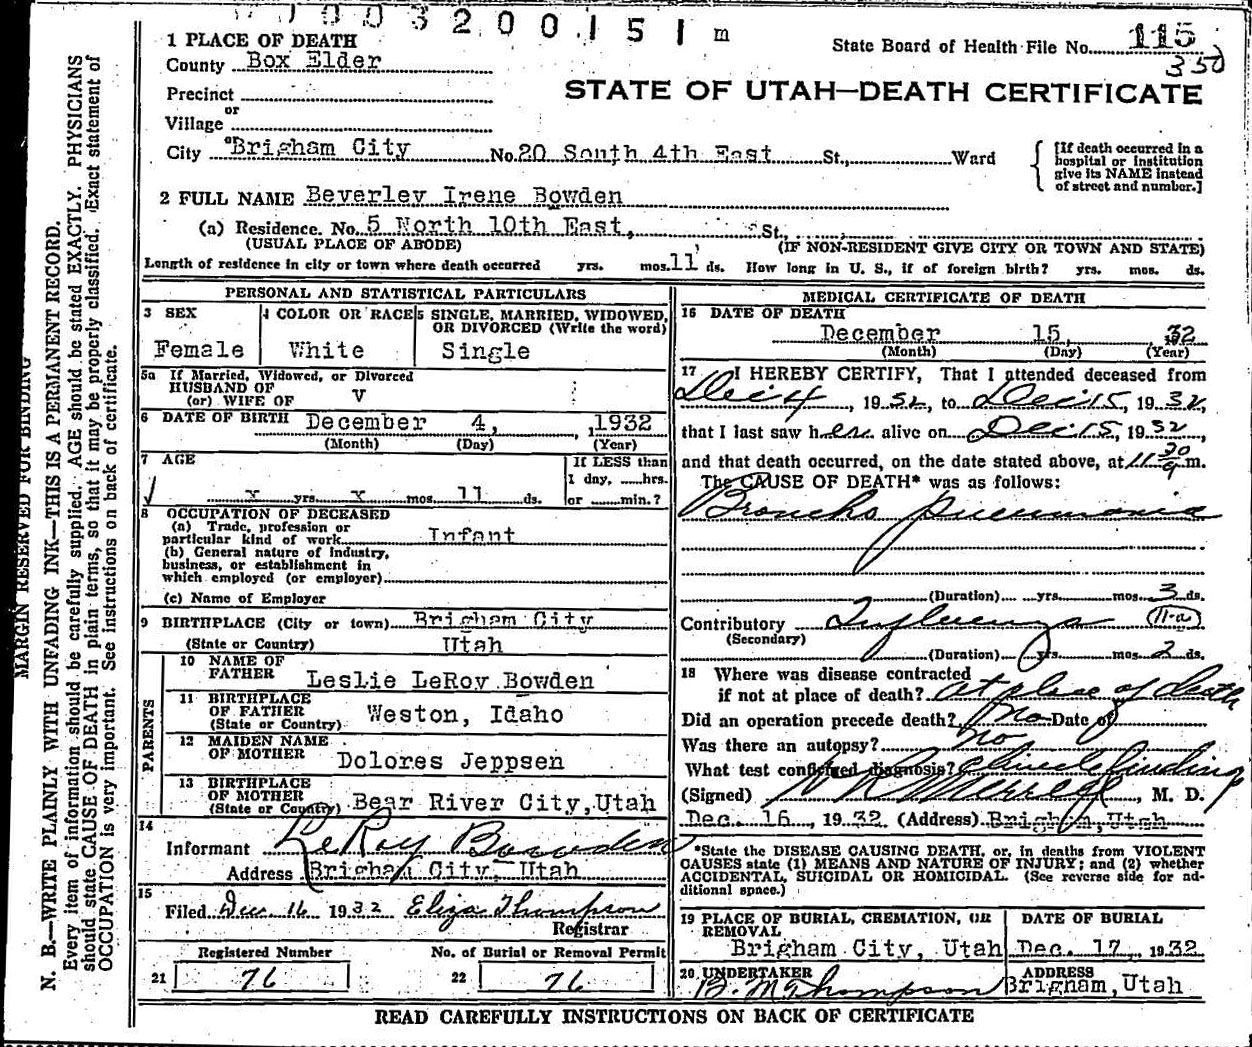 1003200151 m
State Board of Health File No. 115
350
1 PLACE OF DEATH
County Box Elder
STATE OF UTAH—DEATH CERTIFICATE
Precinct
or
Village
City Brigham City No. 20 South 4th East St., Ward
[If death occurred in a hospital or institution give its NAME instead of street and number.]
2 FULL NAME Beverley Irene Bowden
(a) Residence. No. 5 North 10th East, St.,
(USUAL PLACE OF ABODE) (IF NON-RESIDENT GIVE CITY OR TOWN AND STATE)
Length of residence in city or town where death occurred yrs. mos. 11 ds. How long in U. S., if of foreign birth? yrs. mos. ds.
PERSONAL AND STATISTICAL PARTICULARS
3 SEX
Female
4 COLOR OR RACE
White
5 SINGLE, MARRIED, WIDOWED,
OR DIVORCED (Write the word)
Single
5a If Married, Widowed, or Divorced
HUSBAND OF
(or) WIFE OF V
6 DATE OF BIRTH December 4, , 1932
(Month) (Day) (Year)
7 AGE
x yrs. x mos. 11 ds.
If LESS than
1 day, hrs.
or min.?
8 OCCUPATION OF DECEASED
(a) Trade, profession or
particular kind of work Infant
(b) General nature of industry,
business, or establishment in
which employed (or employer)
(c) Name of Employer
9 BIRTHPLACE (City or town) Brigham City
(State or Country) Utah
PARENTS
10 NAME OF
FATHER Leslie LeRoy Bowden
11 BIRTHPLACE
OF FATHER
(State or Country) Weston, Idaho
12 MAIDEN NAME
OF MOTHER Dolores Jeppsen
13 BIRTHPLACE
OF MOTHER
(State or Country) Bear River City, Utah
14
Informant LeRoy Bowden
Address Brigham City, Utah
15
Filed Dec 16 1932 Eliza Thompson
Registrar
Registered Number No. of Burial or Removal Permit
21 76 22 76
MEDICAL CERTIFICATE OF DEATH
16 DATE OF DEATH
December 15, 32
(Month) (Day) (Year)
17 I HEREBY CERTIFY, That I attended deceased from
Dec 4, 1932, to Dec 15, 1932,
that I last saw her alive on Dec 15, 1932,
and that death occurred, on the date stated above, at 11 30 a m.
The CAUSE OF DEATH* was as follows:
Broncho pneumonia
(Duration) yrs. mos. 3 ds.
Contributory Influenza (11-a)
(Secondary)
(Duration) yrs. mos. 2 ds.
18 Where was disease contracted
if not at place of death? At place of death
Did an operation precede death? no Date of
Was there an autopsy? no
What test confirmed diagnosis?
(Signed) , M. D.
Dec. 16, 1932 (Address) Brigham, Utah
*State the DISEASE CAUSING DEATH, or, in deaths from VIOLENT
CAUSES state (1) MEANS AND NATURE OF INJURY; and (2) whether
ACCIDENTAL, SUICIDAL OR HOMICIDAL. (See reverse side for ad-
ditional space.)
19 PLACE OF BURIAL, CREMATION, OR
REMOVAL
Brigham City, Utah
DATE OF BURIAL
Dec. 17, 1932
20 UNDERTAKER
B. M. Thompson
ADDRESS
Brigham, Utah
READ CAREFULLY INSTRUCTIONS ON BACK OF CERTIFICATE
MARGIN RESERVED FOR BINDING
N. B.—WRITE PLAINLY WITH UNFADING INK—THIS IS A PERMANENT RECORD.
Every item of information should be carefully supplied. AGE should be stated EXACTLY. PHYSICIANS
should state CAUSE OF DEATH in plain terms, so that it may be properly classified. Exact statement of
OCCUPATION is very important. See instructions on back of certificate.